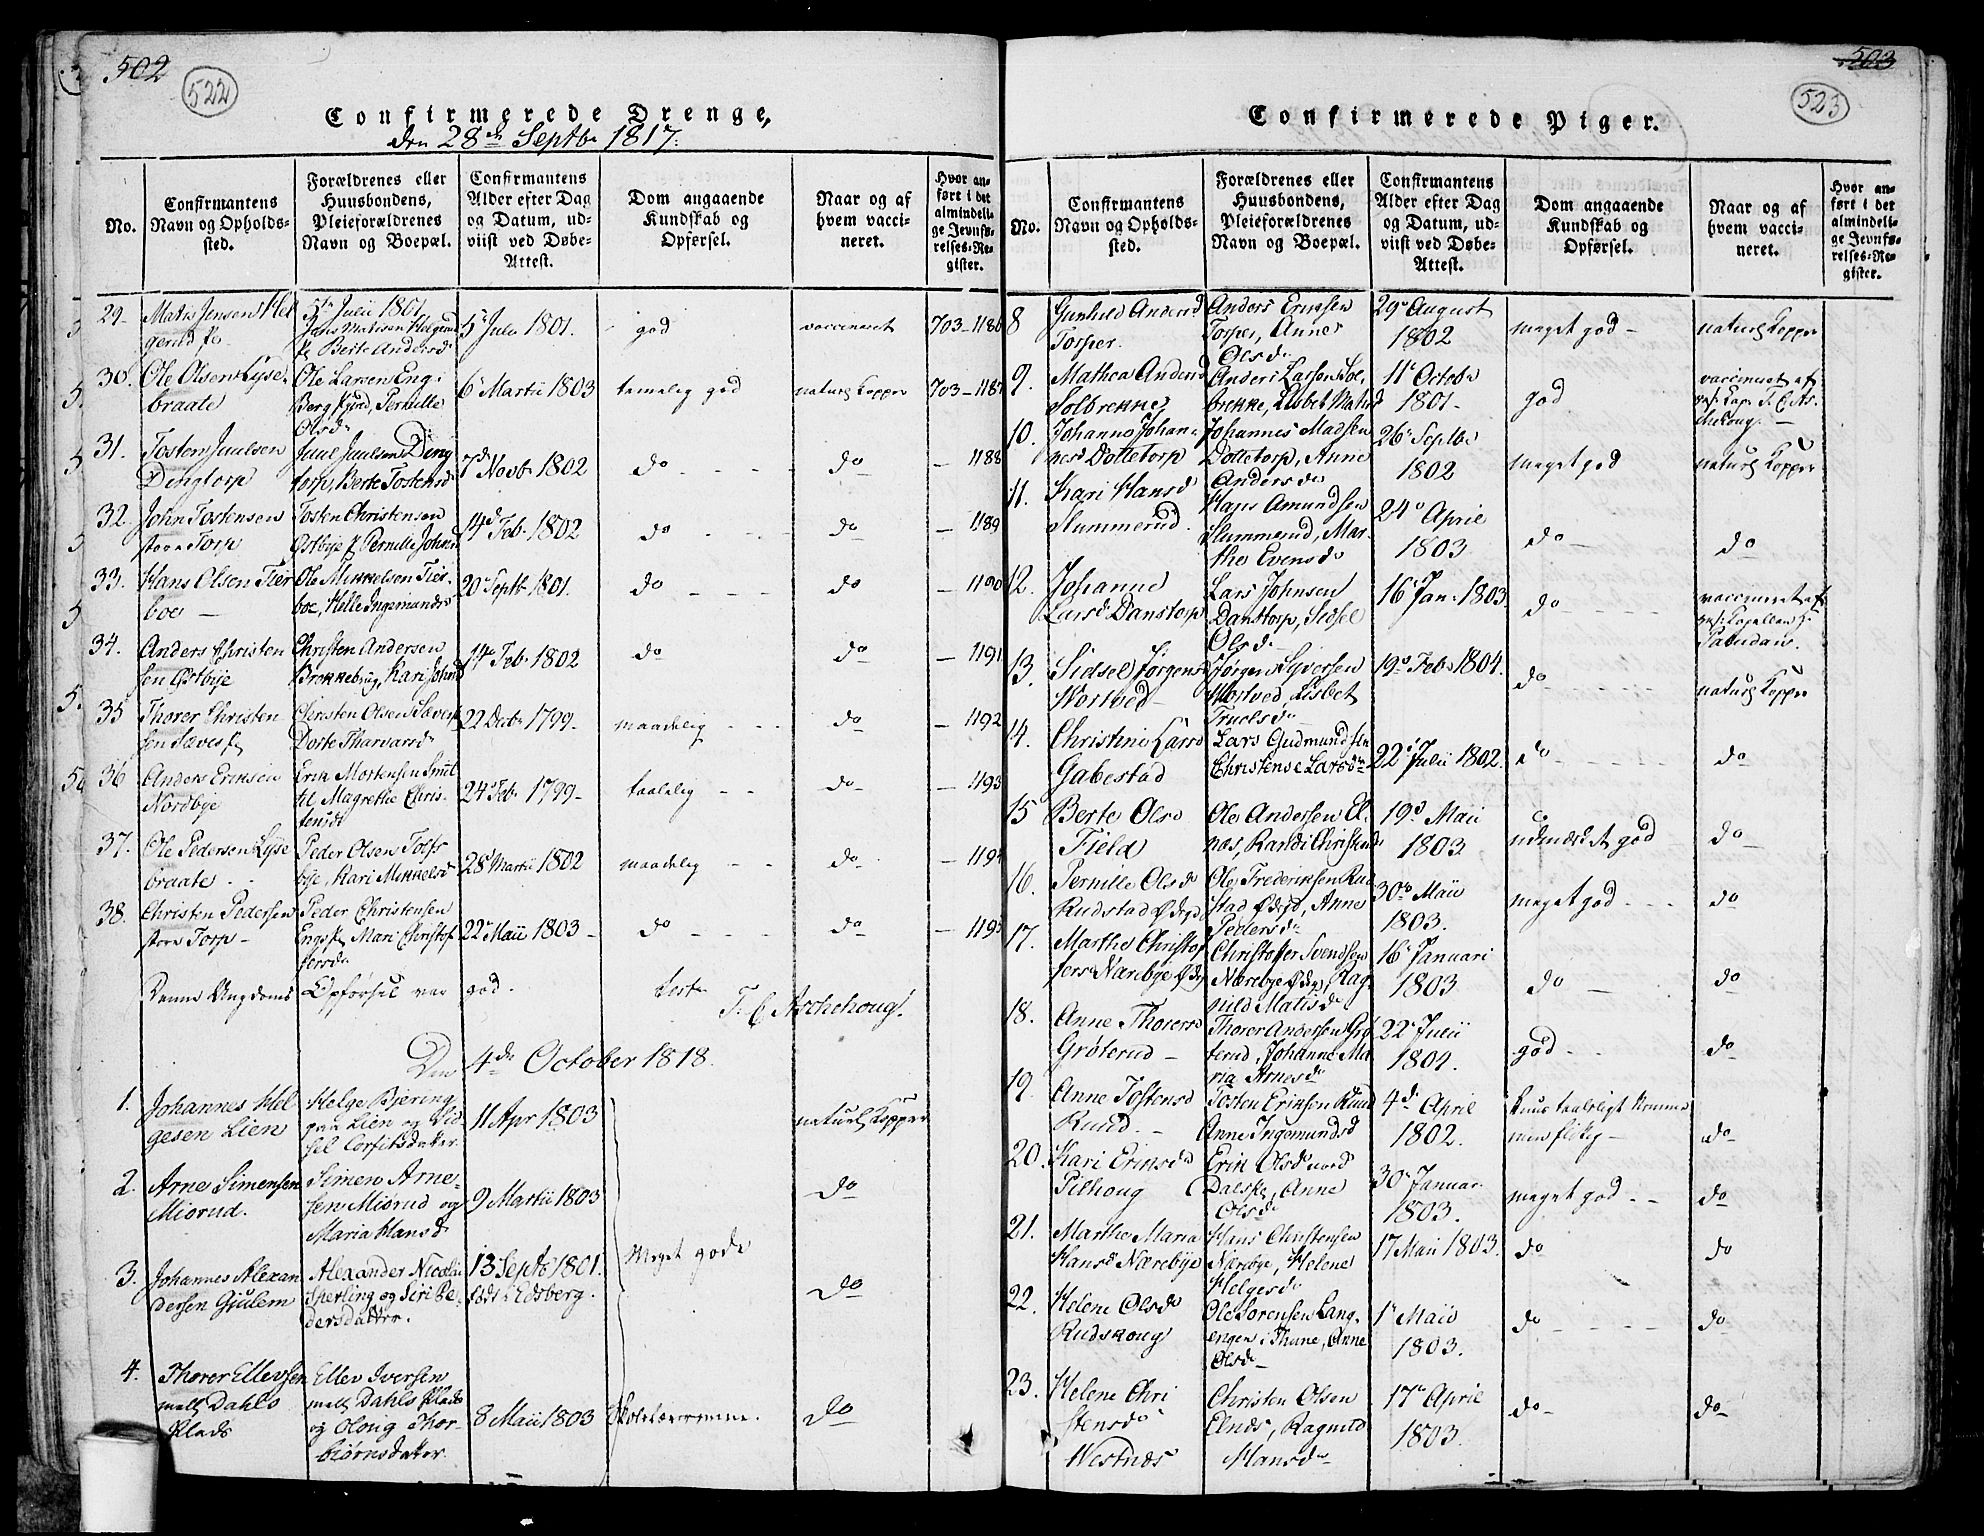 502
522
Confirmerede Drenge,
den 28de Septbr 1817.
No.
Confirmantens
Navn og Opholds-
sted.
Forældrenes eller
Huusbondens,
Pleieforældrenes
Navn og Boepæl.
Confirmantens
Alder efter Dag
og Datum, ud-
viist ved Døbe-
Attest.
Dom angaaende
Kundskab og
Opførsel.
Naar og af
hvem vacci-
neret.
Hvor an-
ført i det
almindeli-
ge Jevnfø-
relses-Re-
gister.
29. Matis Jensen Hel
gerud
5te Julii 1801
Jens Matisen Helgerud
Berte Andersd
5te Julii 1801.
god
vaccineret
703-1186
30. Ole Olsen Lyse-
braate
Ole Larsen Eng-
Berg, Pernille
Olsd
6te Martii 1803
temelig god
naturl Kopper
703-1187
31. Tosten Juulsen
Dingtorp
Juul Juulsen Ding
torp, Berte Tostensd
7de Novb 1802
do
do
-1188
32. John Tostensen
store Torp
Tosten Christensen
Østbye Pernille Johnsd
14d Feb 1802
do
do
-1189
33. Hans Olsen Tier
boe
Ole Mikkelsen Tier-
boe, Helle Ingemandsd
20 Septb 1801.
do
do
-1190
34. Anders Christen
sen Østbye
Christen Andersen
Brekkebrug, Kari Johnsd
14de Feb 1802
do
do
-1191
35 Thorer Christen
sen Sæves
Christen Olsen Sæves
Dorte Tharvarsd
22 Decb 1799.
maadelig
do
-1192
36 Anders Eriksen
Nordbye
Erik Mortensen
Magrethe Chris-
tensd
24 Feb 1799.
taalelig
do
-1193
37. Ole Pedersen Lyse
braate
Peder Olsen Tofte
bye, Kari Mikkelsd
28d Martii 1802
maadelig
do
-1194
38. Christen Pedersen
store Torp
Peder Christensen
Mari Christof
fersd
22de Maii 1803
do
do
-1195
Denne Ungdoms Opførsel var god.
test
T. C. Aschehoug.
Den 4de October 1818.
1. Johannes Hel
gesen Lien
Helge Bjering
Lien og Sid
sel Corfitsdatter.
11 Apr 1803
naturl Kopper
2. Arne Simensen
Miorud.
Simen Arne-
sen Miorud og
Maria Hansd
9 Martii 1803
do
Meget gode
3. Johannes Alexan
dersen Gjulem
Alexander Nicolai
Sperling og Siri Pe-
dersdatter.
13 Septb 1801.
føds i Edsberg.
do
4. Thorer Ellevsen
mell Dahls
Plads
Ellev Iversen
mell Dahls Plads
og Oloug Thor-
biørnsdatter.
8 Maii 1803
do
503
523
Confirmerede Piger.
No.
Confirmantens
Navn og Opholds-
sted.
Forældrenes eller
Huusbondens,
Pleieforældrenes
Navn og Boepæl.
Confirmantens
Alder efter Dag
og Datum, ud-
viist ved Døbe-
Attest.
Dom angaaende
Kundskab og
Opførsel.
Naar og af
hvem vacci-
neret.
Hvor an-
ført i det
almindeli-
ge Jevnfø-
relses-Re-
gister.
8 Gunhild Andersd
Torper.
Anders Eriksen
Torper, Anne
Olsd
29 August
1802
meget god
naturl Kopper
9. Mathea Andersd
Solbrekke
Anders Larsen Sol-
brekke, Lisbet Matisd
11 Octobr
1801.
god
vaccineret af
Cap. T. C. As-
chehoug.
10. Johanne Johan-
nesd Dottetorp
Johannes Madsen
Dottetorp, Anne
Andersd
26 Septbr
1802
meget god
naturl Kopper
11. Kari Hansd
Slummerud.
Hans Amundsen
Slummerud, Mar-
the Evensd
24 April
1803
do
do
12. Johanne
Larsd Danstorp
Lars Johnsen
Danstorp, Sidsel
Olsd
16 Jan 1803.
do
vaccineret af
Capellan
13. Sidsel Jørgens
Hortved
Jørgen Syversen
Hortved, Lisbet
Truelsd
19d Feb 1804.
do
naturl Kopper
14. Christine Larsd
Gabestad
Lars Gudmundsen
Christense Larsd
22 Julii 1802.
do
do
15 Berte Olsd
Field
Ole Andersen El-
næs, Randi Christensd
19d Maii
1803
udmærket god
do
16. Pernille Olsd
Rudstad Ødegd
Ole Frederiksen Rud
stad Ødegd, Anne
Pedersd
30te Maii
1803.
meget god
do
17. Marthe Christof
fers Nærebye Ødeg
Christoffer Svendsen
Nærebye Ødeg, Rag-
nild Matisd
16 Januari
1803
do
do
18. Anne Thorersd
Grøterud
Thorer Andersen Grø
terud, Johanne Ma
ria Arnesd
22 Julii
1804.
god
do
19. Anne Tostensd
Ruud.
Tosten Eriksen Ruud
Anne Ingemundsd
4de April
1802.
men flitig
do
20. Kari Eriksd
Pilhoug
Erik Olsen nord
Dalske, Anne
Olsd
30 Januar
1803.
meget god
do
21. Marthe Maria
Hansd Nærebye
Hans Christensen
Nærebye, Helene
Helgesd
17 Maii 1803.
do
do
22. Helene Olsd
Rudskoug
Ole Sørensen Lang-
engen i Thune, Anne
Olsd
1te Maii
1803.
do
do
23. Helene Chri
stensd
Westnæs
Christen Olsen
Elnæs, Ragnild
Hansd
17te April
1803.
do
do